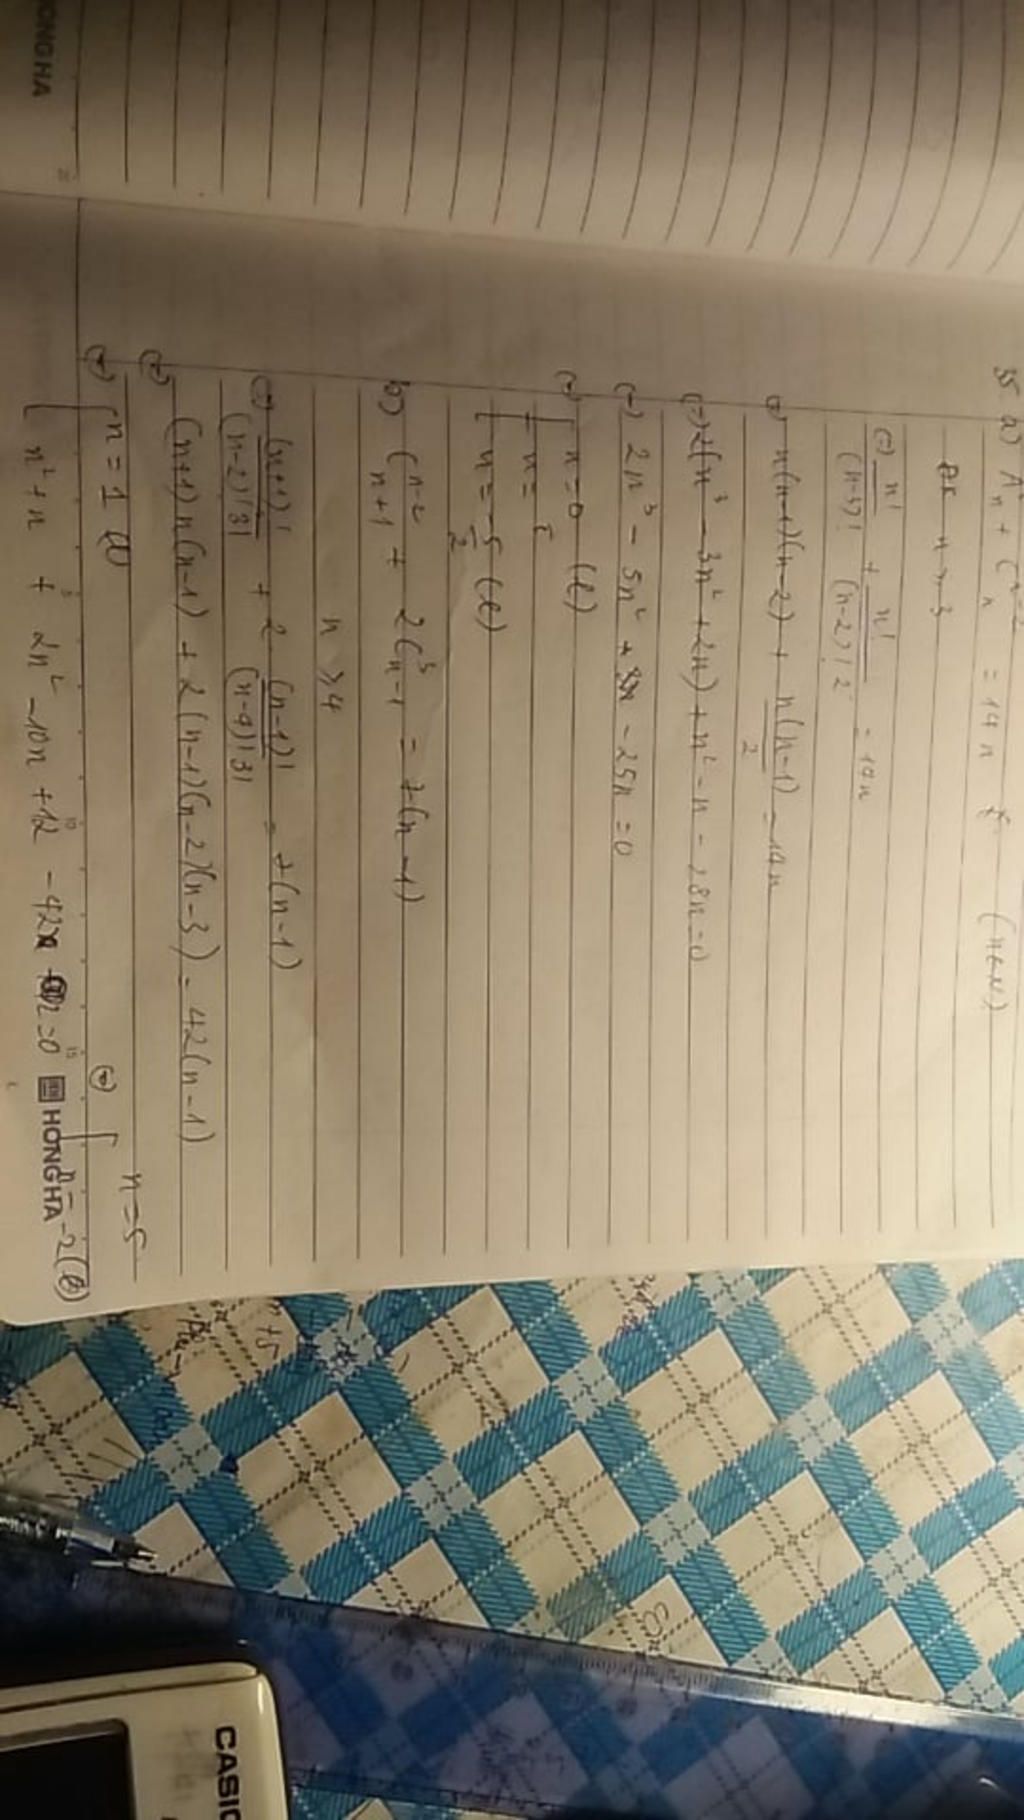 35 a) A³ₙ + Cₙⁿ⁻² = 14n (n∈N)
ĐK n ≥ 3
(=) n!/(n-3)! + n!/(n-2)!2 = 14n
(=) n(n-1)(n-2) + n(n-1)/2 = 14n
(=) 2(n³ - 3n² + 2n) + n² - n - 28n = 0
(=) 2n³ - 5n² - 25n = 0
(=) [ n = 0 (l)
n = 5
n = -5/2 (l)
b) Cₙ₊₁ⁿ⁻² + 2C³ₙ₋₁ = 7(n-1)
n ≥ 4
(=) (n+1)!/(n-2)!3! + 2 (n-1)!/(n-4)!3! = 7(n-1)
(=) (n+1)n(n-1) + 2(n-1)(n-2)(n-3) = 42(n-1)
(=) [ n = 1 (l)
n² + n + 2n² - 10n + 12 - 42 = 0
(=) [ n = 5
n = -2 (l)
HONG HA
ONG HA
5
10
15
CASIO